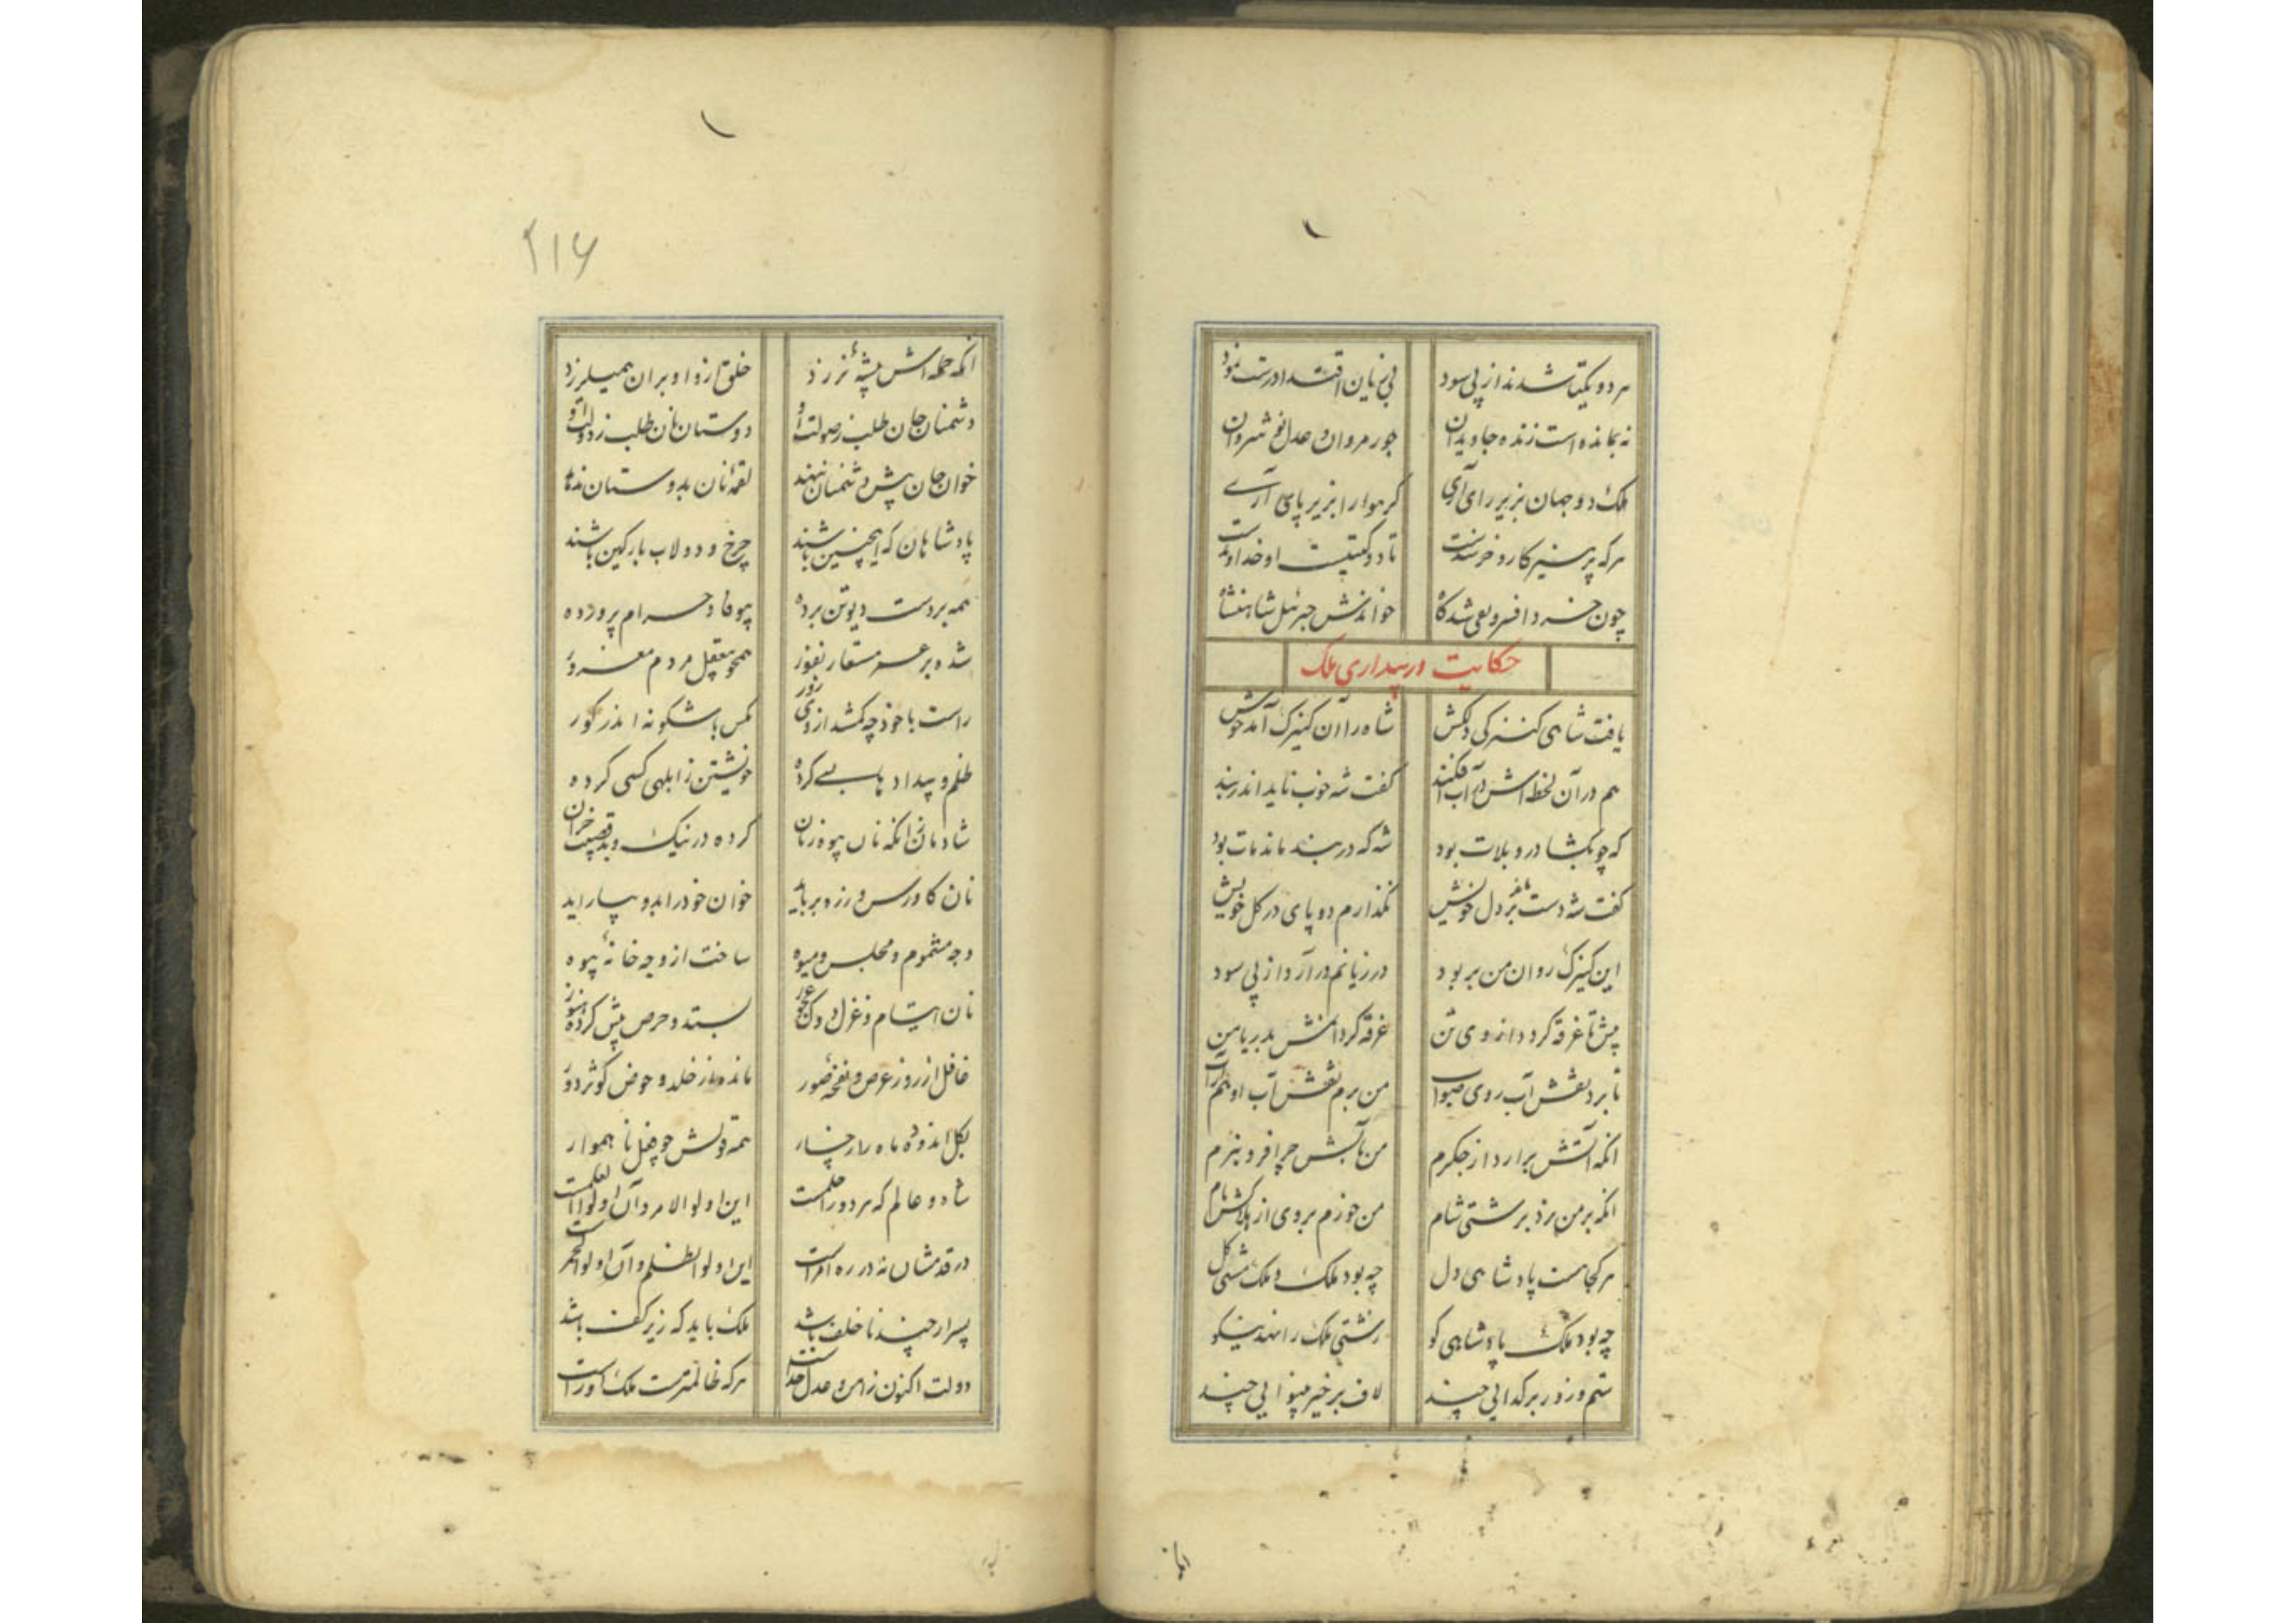 هر دو یکتا شدند از پی سود
بی زیان اقتدا درست نمود
نه بمانده است زنده جاویدان
جور مروان و عدل نوشروان
ملک دو جهان بزیر رای آری
گر هوا را بزیر پای آری
هر که پرهیزکار و خرسندست
تا دو گیتیست او خداوندست
چون خرد افسر و
خواندش جبرئیل شاهنشاه
حکایت در بیداری ملک
یافت شاهی کنیزکی دلکش
شاه را آن کنیزک آمد خوش
هم در آن لحظه اش در آب افکند
گفت شه خوب ناید اندر بند
که چو بگشاد رو بلات بود
شه که در بند ماند مات بود
گفت شه دست بر دل خویش
نگذارم دو پای در گل خویش
این کنیزک روان من بربود
در زیانم درآرد از پی سود
پیش تا غرقه کردد از وی تن
غرقه کردانمش بدریا من
تا برد نقش آب روی صواب
من برم نقش آب او هم از آب
انکه آتش برارد از جکرم
من بآبش چرا فرو نبرم
انکه بر من برد برشتی شام
من خورم بروی از
هر کجا هست پادشاهی دل
چه بود ملک و ملک مشتی کل
چه بود ملک پادشاهی کو
زشتی ملک را نهد نیکو
ستم و زور بر کدایی چند
لاف بر خیز بینوایی چند
۲۱۶
انکه حمله اش پشه نرزد
خلق تازه او بران همیلرزد
دشمنان جان طلب ز صولت او
دوستان نان طلب ز دولت او
خوان جان پیش دشمنان ننهند
لقمه نان بدوستان ندهند
پادشاهان که اینچنین باشند
چرخ و دولاب بارکین باشند
همه بر دست دیو تن برده
بیوفا و حرام پرورده
شده بر عمر مستعار نفور
همچو معقل مردم مغرور
راست با خود چه کشد از وی زور
کس باشکونه اندر کور
ظلم و بیدادها بسی کرده
خویشتن ز ابلهی کسی کرده
شادمان زانکه نان بیوه زنان
کرده در نیک و بد
نان کاورس و رزه برباید
خوان خود را بدو بیاراید
وجه مشموم و مجلس و میوه
ساخت از وجه خانه بیوه
نان ایتام و غزل و دوک عجوز
بستد و حرص پیش کرده هنوز
غافل از روز عرض و نفخه صور
مانده از خلد و حوض کوثر دور
بکل اندوده ماه را رخسار
همه قولش چو فعل ناهموار
شاه و عالم که هر دو را حلمست
این اولو الامر و آن اولو العلمست
در قدمشان نه در ره امرست
این اولو الظلم و آن اولو الخمرست
پسر ارچند ناخلف باشد
ملک باید که زیر کف باشد
دولت اکنون ز امن و عدل جداست
هر که ظالمترست ملک اوراست